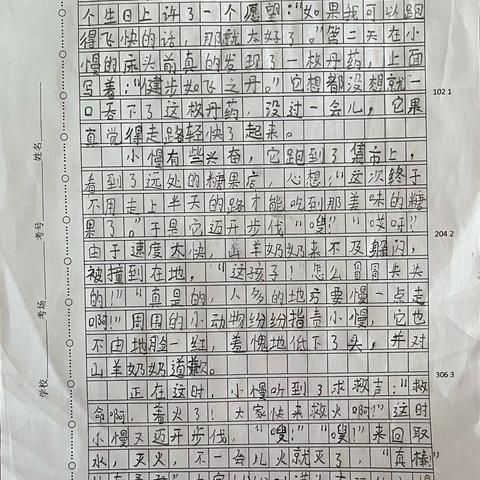 个生日上许了一个愿望：“如果我可以跑
得飞快的话，那就太好了。”第二天在小
慢的床头前真的发现了一枚丹药，上面
写着：“健步如飞之丹。”它想都没想就一
口吞下了这枚丹药，没过一会儿，它果
真觉得走路轻快了起来。
小慢有些兴奋，它跑到了集市上，
看到了远处的糖果店，心想：“这次终于
不用走上半天的路才能吃到那美味的糖
果了。”于是它迈开步伐“嗖！”“哎呀！”
由于速度太快，山羊奶奶来不及躲闪，
被撞到在地，“这孩子！怎么冒冒失失
的！”“真是的，人多的地方要慢一点走
啊！”周围的小动物纷纷指责小慢，它也
不由地脸一红，羞愧地低下了头，并对
山羊奶奶道歉。
正在这时，小慢听到了求救声：“救
命啊，着火了！大家快来救火啊！”这时
小慢又迈开步伐，“嗖！”“嗖！”来回取
水，灭火，不一会儿火就灭了，“真棒”
102 1
204 2
306 3
姓名
考号
考场
学校